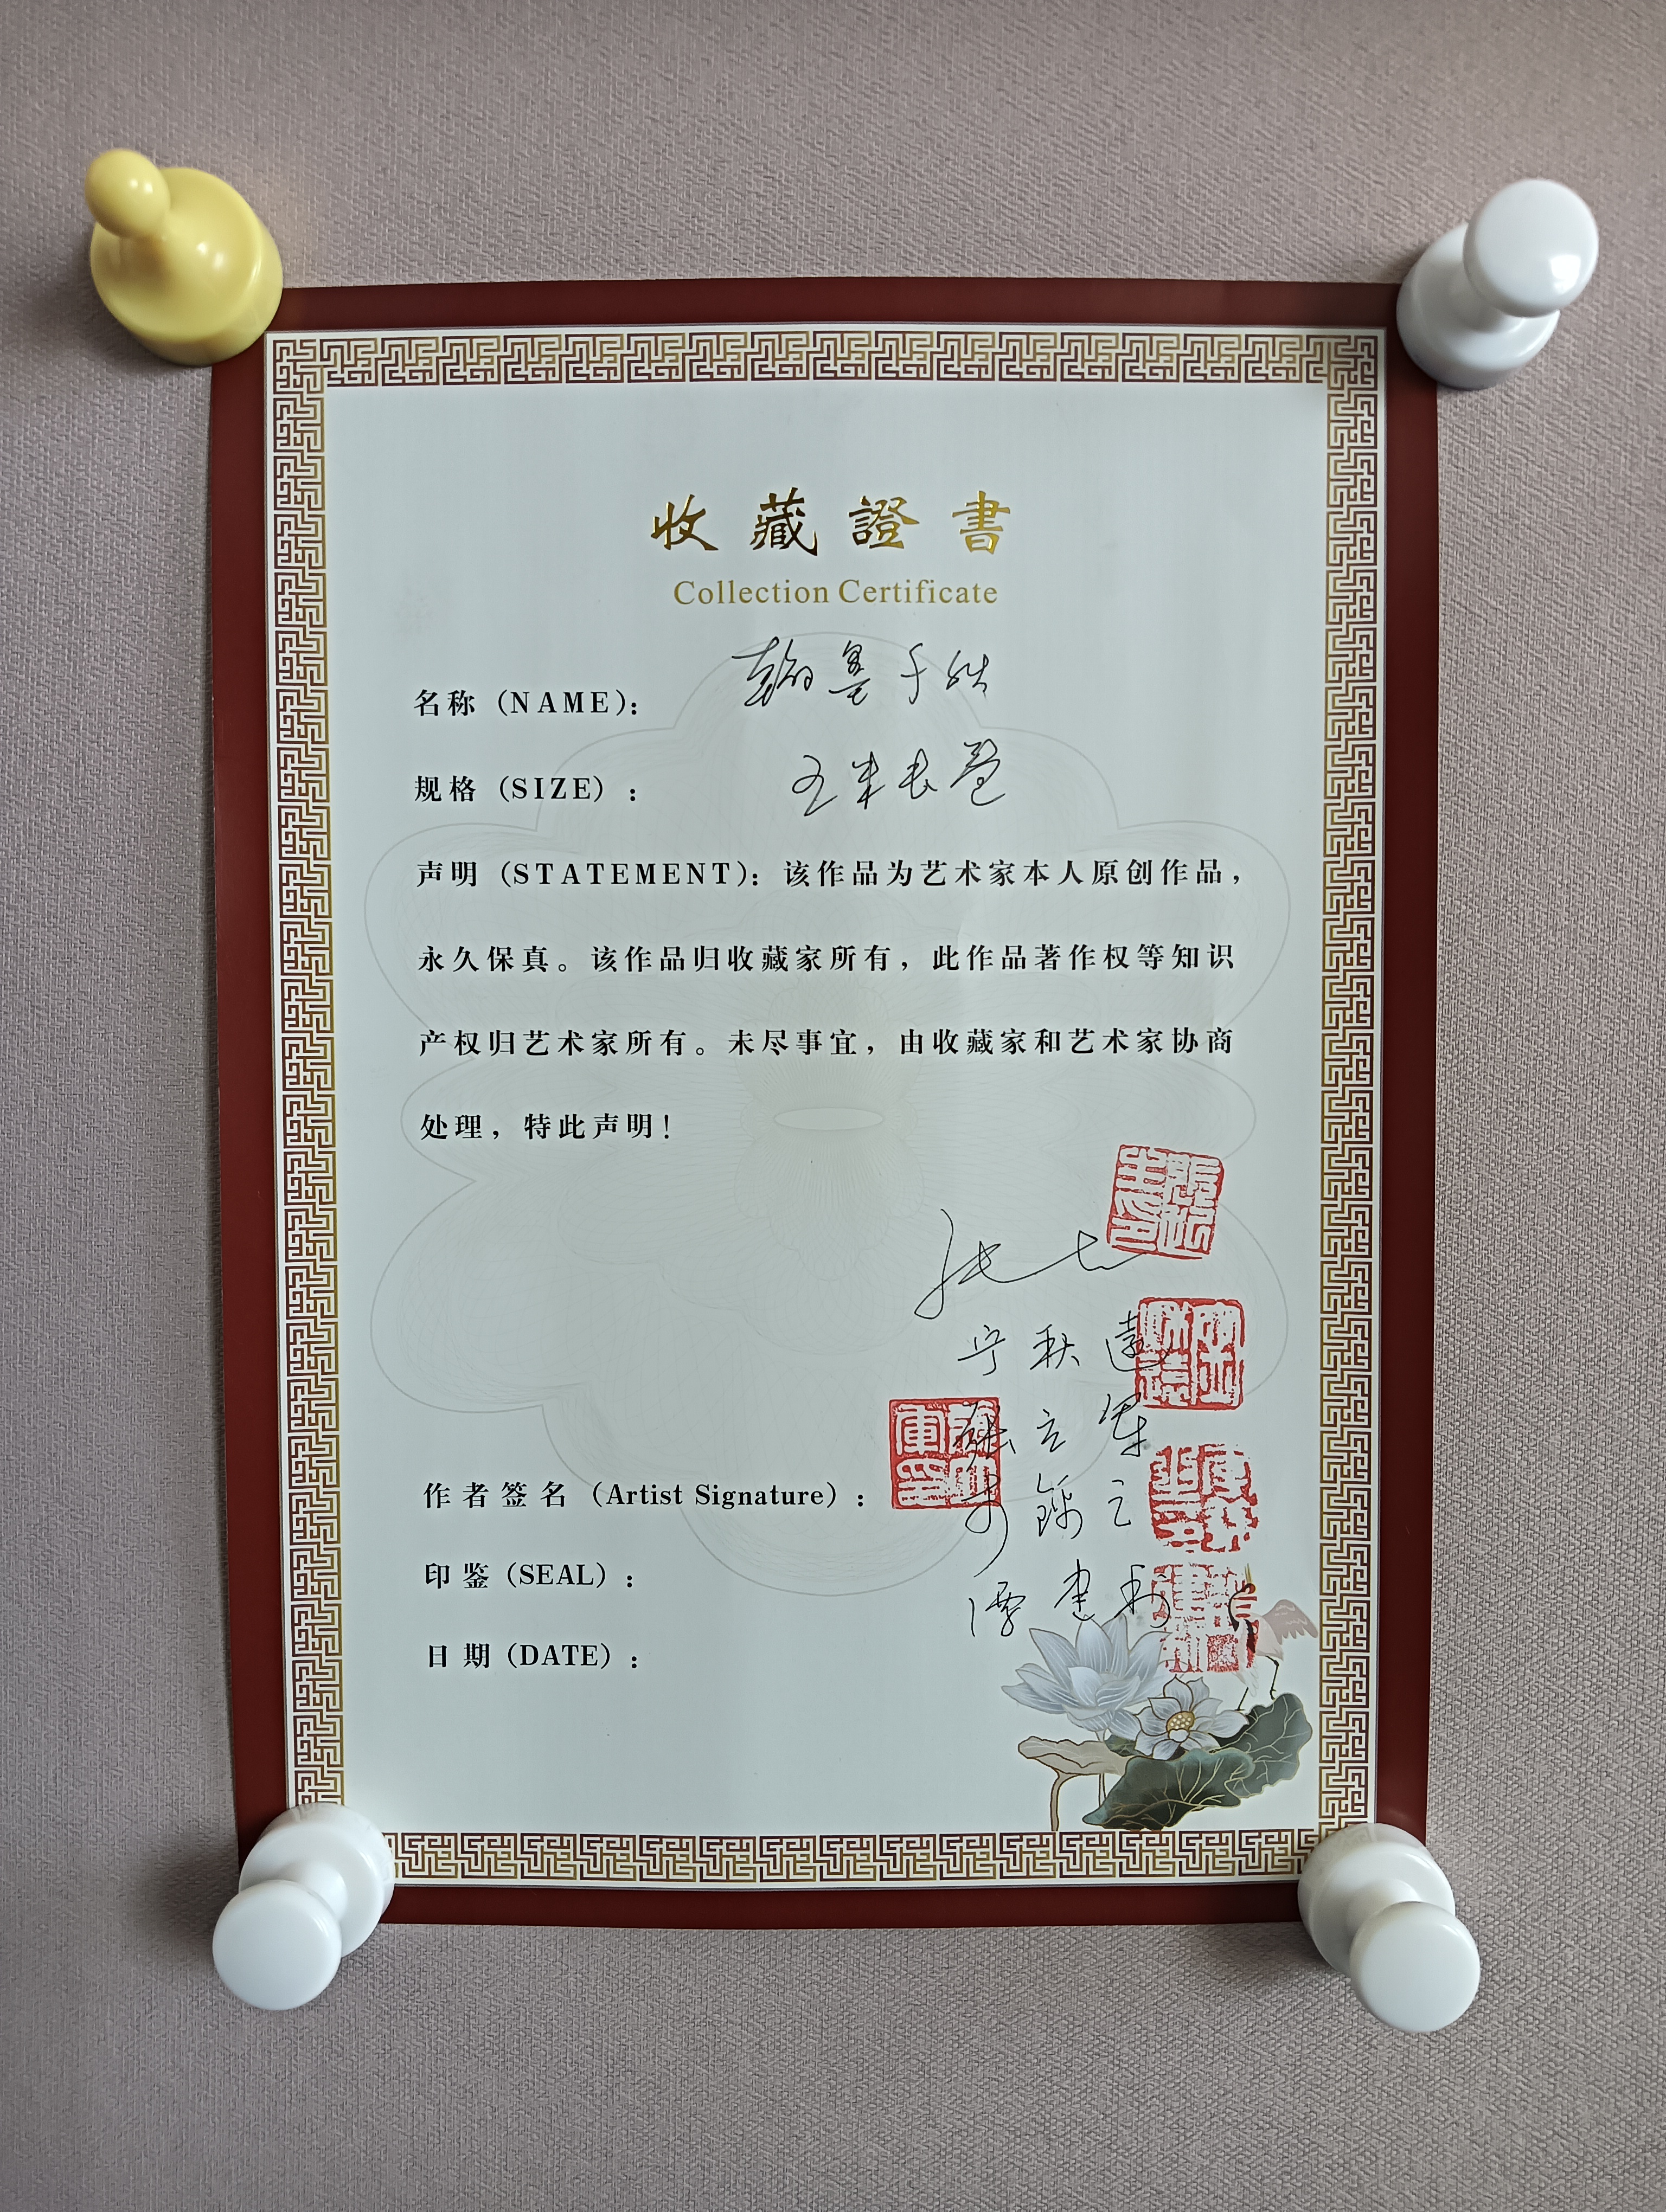 收藏證書
Collection Certificate
名称（NAME）： 翰墨千秋
规格（SIZE）： 五米长卷
声明（STATEMENT）：该作品为艺术家本人原创作品，
永久保真。该作品归收藏家所有，此作品著作权等知识
产权归艺术家所有。未尽事宜，由收藏家和艺术家协商
处理，特此声明！
宁秋
立军
作者签名（Artist Signature）：
印鉴（SEAL）：
谭建
日期（DATE）：